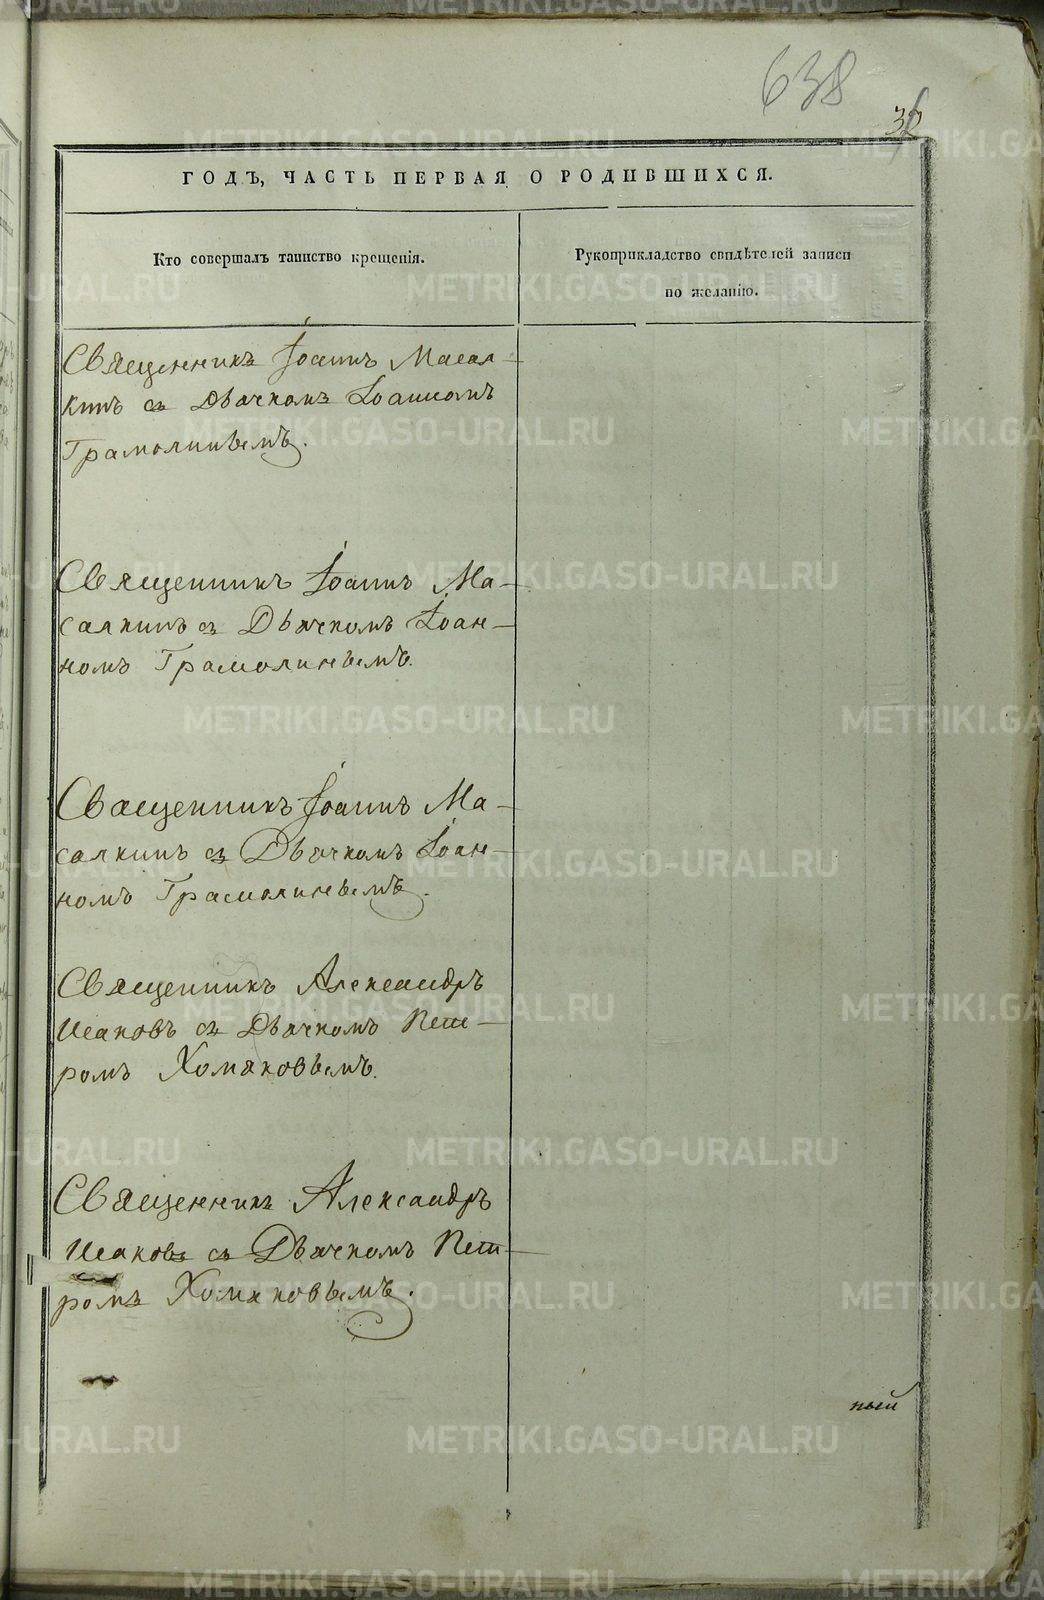 638
32
ГОДЪ, ЧАСТЬ ПЕРВАЯ О РОДИВШИХСЯ.
Кто совершалъ таинство крещенія.
Рукоприкладство свидѣтелей записи
по желанію.
Священникъ Іоаннъ Масал-
кинъ съ Дьячкомъ Іоанномъ
Грамолинымъ.
Священникъ Іоаннъ Ма-
салкинъ съ Дьячкомъ Іоан-
номъ Грамолинымъ.
Священникъ Іоаннъ Ма-
салкинъ съ Дьячкомъ Іоан-
номъ Грамолинымъ.
Священникъ Александръ
Исаковъ съ Дьячкомъ Пет-
ромъ Хомяковымъ.
Священникъ Александръ
Исаковъ съ Дьячкомъ Пет-
ромъ Хомяковымъ.
ный
METRIKI.GASO-URAL.RU